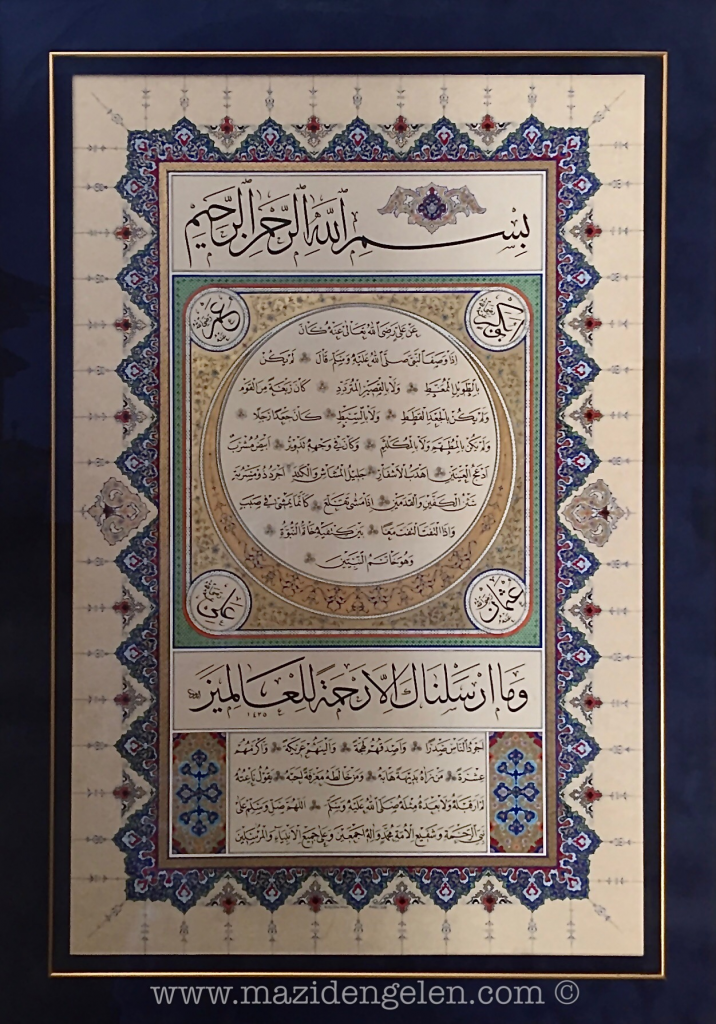 بِسْمِ اللهِ الرَّحْمٰنِ الرَّحِيمِ
عَنْ عَلِيٍّ رَضِيَ اللهُ تَعَالٰى عَنْهُ كَانَ
إِذَا وَصَفَ النَّبِيَّ صَلَّى اللهُ عَلَيْهِ وَسَلَّمَ قَالَ لَمْ يَكُنْ
بِالطَّوِيلِ الْمُمَّغِطِ وَلَا بِالْقَصِيرِ الْمُتَرَدِّدِ كَانَ رَبْعَةً مِنَ الْقَوْمِ
وَلَمْ يَكُنْ بِالْجَعْدِ الْقَطَطِ وَلَا بِالسَّبِطِ كَانَ جَعْدًا رَجِلًا
وَلَمْ يَكُنْ بِالْمُطَهَّمِ وَلَا بِالْمُكَلْثَمِ وَكَانَ فِي وَجْهِهِ تَدْوِيرٌ أَبْيَضُ مُشْرَبٌ
أَدْعَجُ الْعَيْنَيْنِ أَهْدَبُ الْأَشْفَارِ جَلِيلُ الْمُشَاشِ وَالْكَتَدِ أَجْرَدُ ذُو مَسْرُبَةٍ
شَثْنُ الْكَفَّيْنِ وَالْقَدَمَيْنِ إِذَا مَشٰى تَقَلَّعَ كَأَنَّمَا يَمْشِي فِي صَبَبٍ
وَإِذَا الْتَفَتَ الْتَفَتَ مَعًا بَيْنَ كَتِفَيْهِ خَاتَمُ النُّبُوَّةِ
وَهُوَ خَاتَمُ النَّبِيِّينَ
عمر
عثمان
علي
وَمَا أَرْسَلْنَاكَ إِلَّا رَحْمَةً لِلْعَالَمِينَ
١٤٣٥
أَجْوَدُ النَّاسِ صَدْرًا وَأَصْدَقُهُمْ لَهْجَةً وَأَلْيَنُهُمْ عَرِيكَةً وَأَكْرَمُهُمْ
عِشْرَةً مَنْ رَآهُ بَدِيهَةً هَابَهُ وَمَنْ خَالَطَهُ مَعْرِفَةً أَحَبَّهُ يَقُولُ نَاعِتُهُ
لَمْ أَرَ قَبْلَهُ وَلَا بَعْدَهُ مِثْلَهُ صَلَّى اللهُ عَلَيْهِ وَسَلَّمَ اللّٰهُمَّ صَلِّ وَسَلِّمْ عَلٰى
نَبِيِّ الرَّحْمَةِ وَشَفِيعِ الْأُمَّةِ مُحَمَّدٍ وَآلِهِ أَجْمَعِينَ وَعَلٰى جَمِيعِ الْأَنْبِيَاءِ وَالْمُرْسَلِينَ
www.mazidengelen.com ©